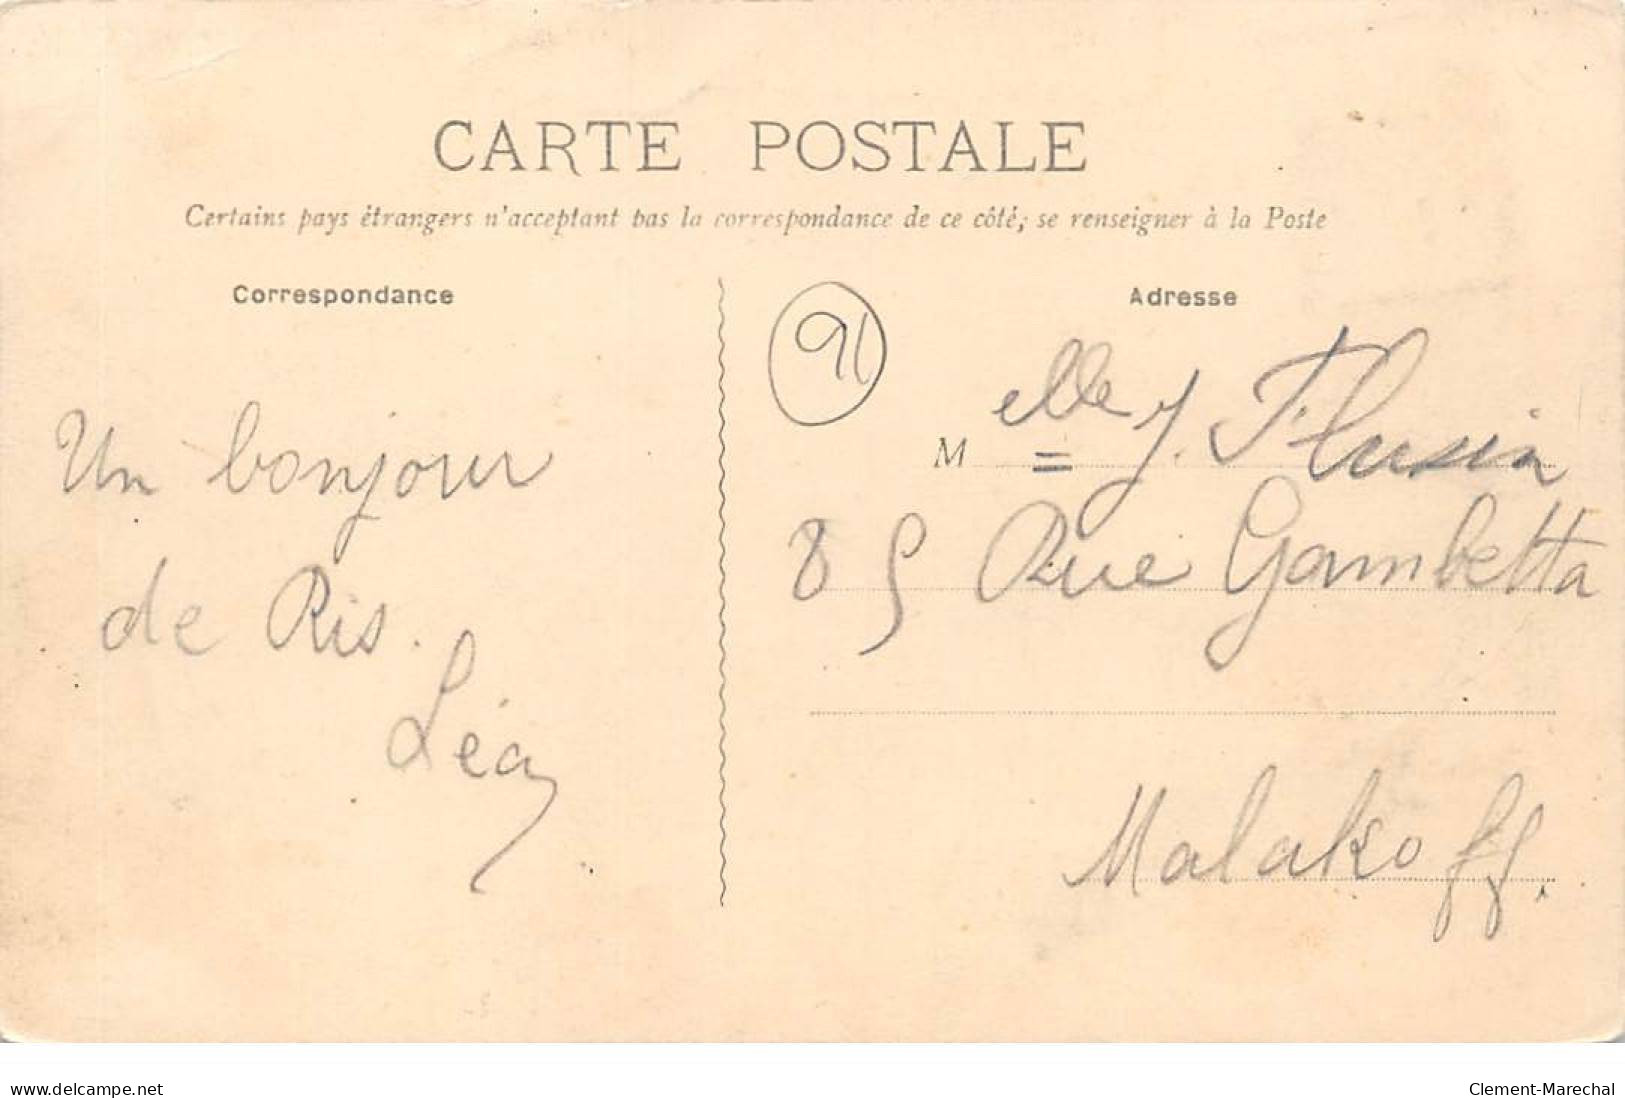 CARTE POSTALE
Certains pays étrangers n'acceptent pas la correspondance de ce côté; se renseigner à la Poste
Correspondance
Adresse
91
Un bonjour
de Ris.
Léa
Melle J. Flusin
85 Rue Gambetta
Malakoff.
www.delcampe.net
Clement-Marechal